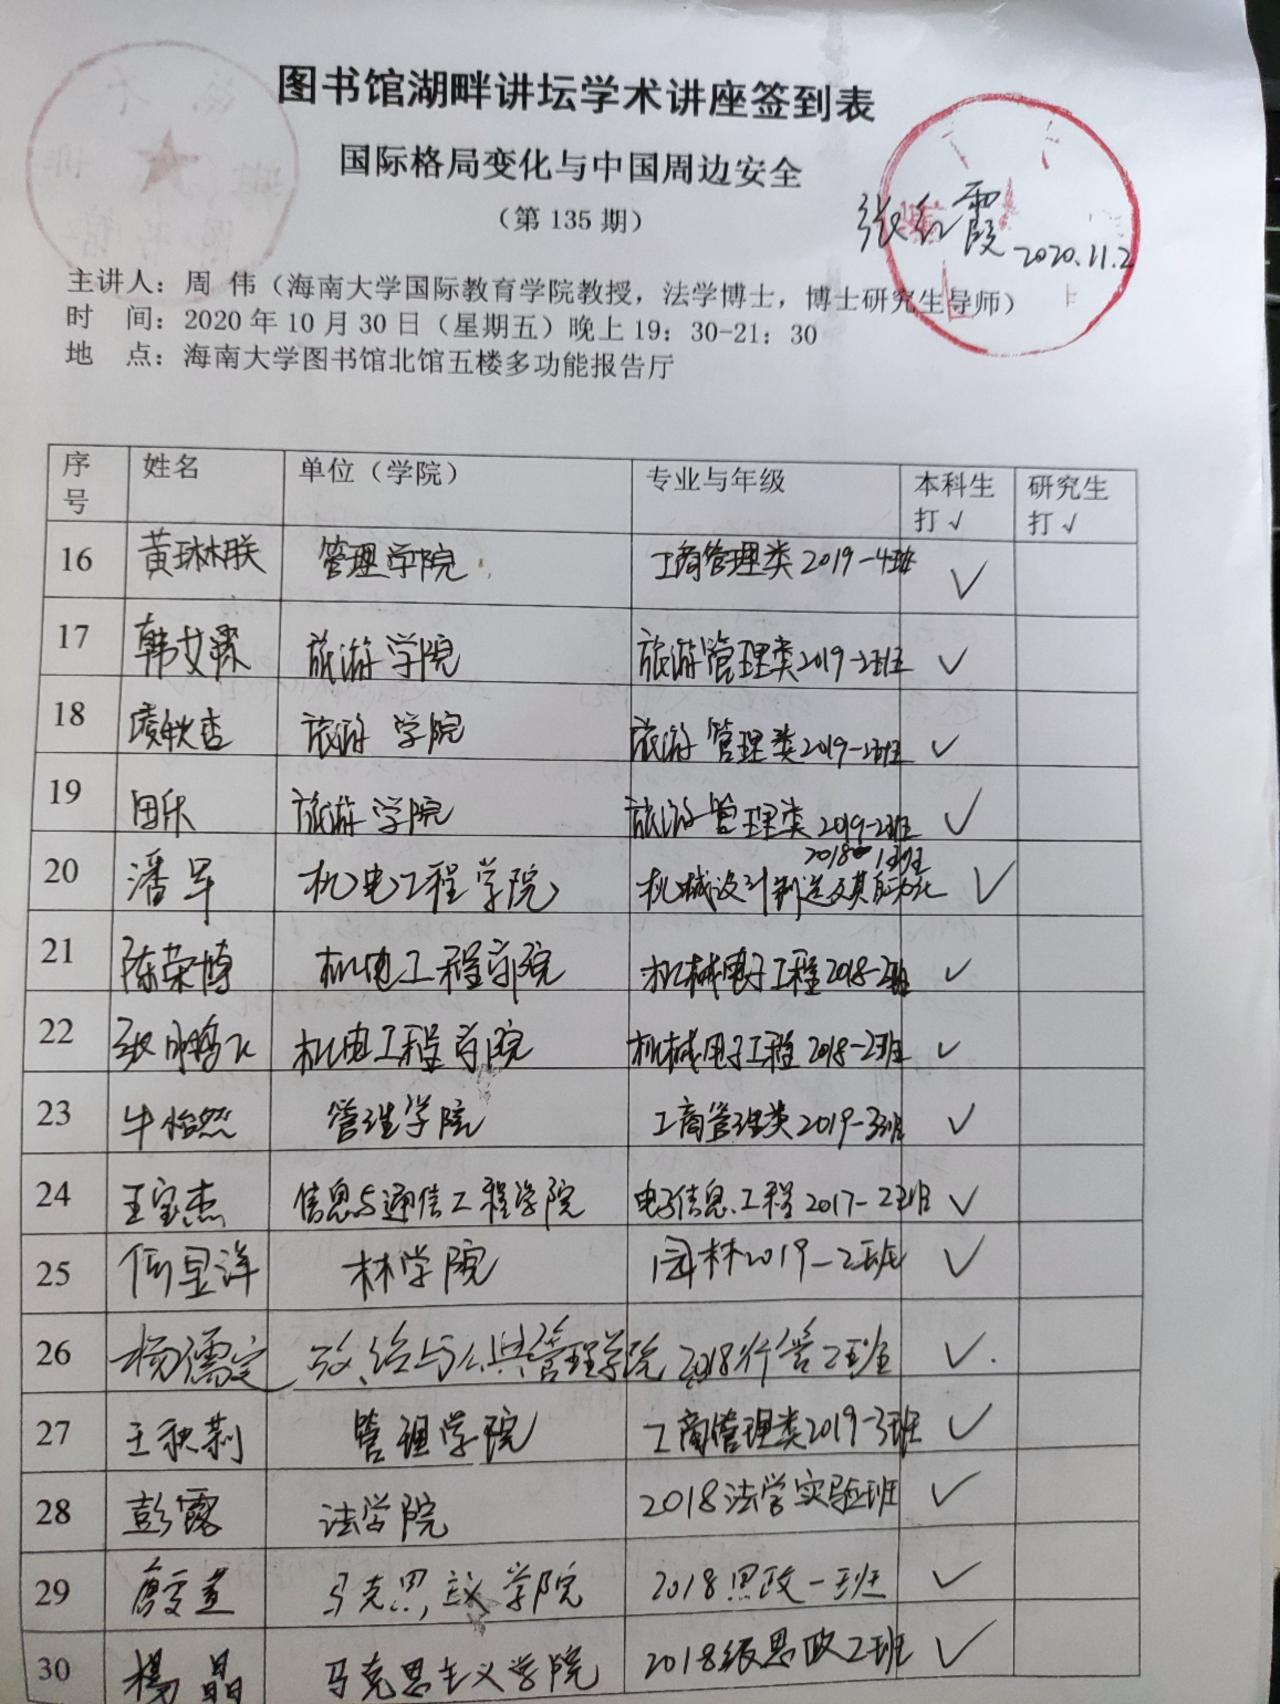 图书馆湖畔讲坛学术讲座签到表
国际格局变化与中国周边安全
（第 135 期）
张红霞 2020.11.2
主讲人：周 伟（海南大学国际教育学院教授，法学博士，博士研究生导师）
时 间：2020 年 10 月 30 日（星期五）晚上 19：30-21：30
地 点：海南大学图书馆北馆五楼多功能报告厅
序号 姓名 单位（学院） 专业与年级 本科生打√ 研究生打√
16 黄琳朕 管理学院 工商管理类2019-4班 √
17 韩艾霖 旅游学院 旅游管理类2019-2班 √
18 旅游学院 旅游管理类2019-2班 √
19 田欣 旅游学院 旅游管理类2019-2班 √
20 潘军 机电工程学院 机械设计制造及其自动化2018-1班 √
21 陈荣博 机电工程学院 机械电子工程2018-2班 √
22 机电工程学院 机械电子工程2018-2班 √
23 牛怡然 管理学院 工商管理类2019-3班 √
24 王宝杰 信息与通信工程学院 电子信息工程2017-2班 √
25 何昱洋 林学院 园林2019-2班 √
26 杨儒定 政治与公共管理学院 2018行管2班 √
27 王秧莉 管理学院 工商管理类2019-3班 √
28 彭露 法学院 2018法学实验班 √
29 马克思主义学院 2018思政一班 √
30 杨晶 马克思主义学院 2018级思政2班 √